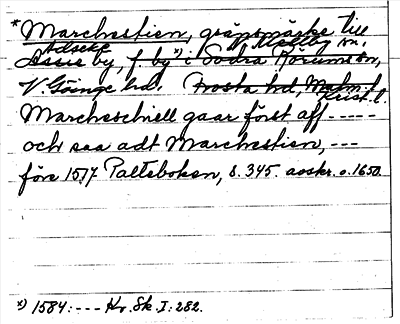 *Marchestien, gränsmärke till
Adseke Mellby sn.
Assie by, f. by x) i Södra Rörums sn,
V Göinge hd. Frosta hd, Malm. l.
Krist. l.
Marcheskiell gaar först aff -----
och saa adt Marchestien, ---
före 1517 Palteboken, s. 345. avskr. o. 1650.
x) 1584: --- Kr. Sk. I: 282.